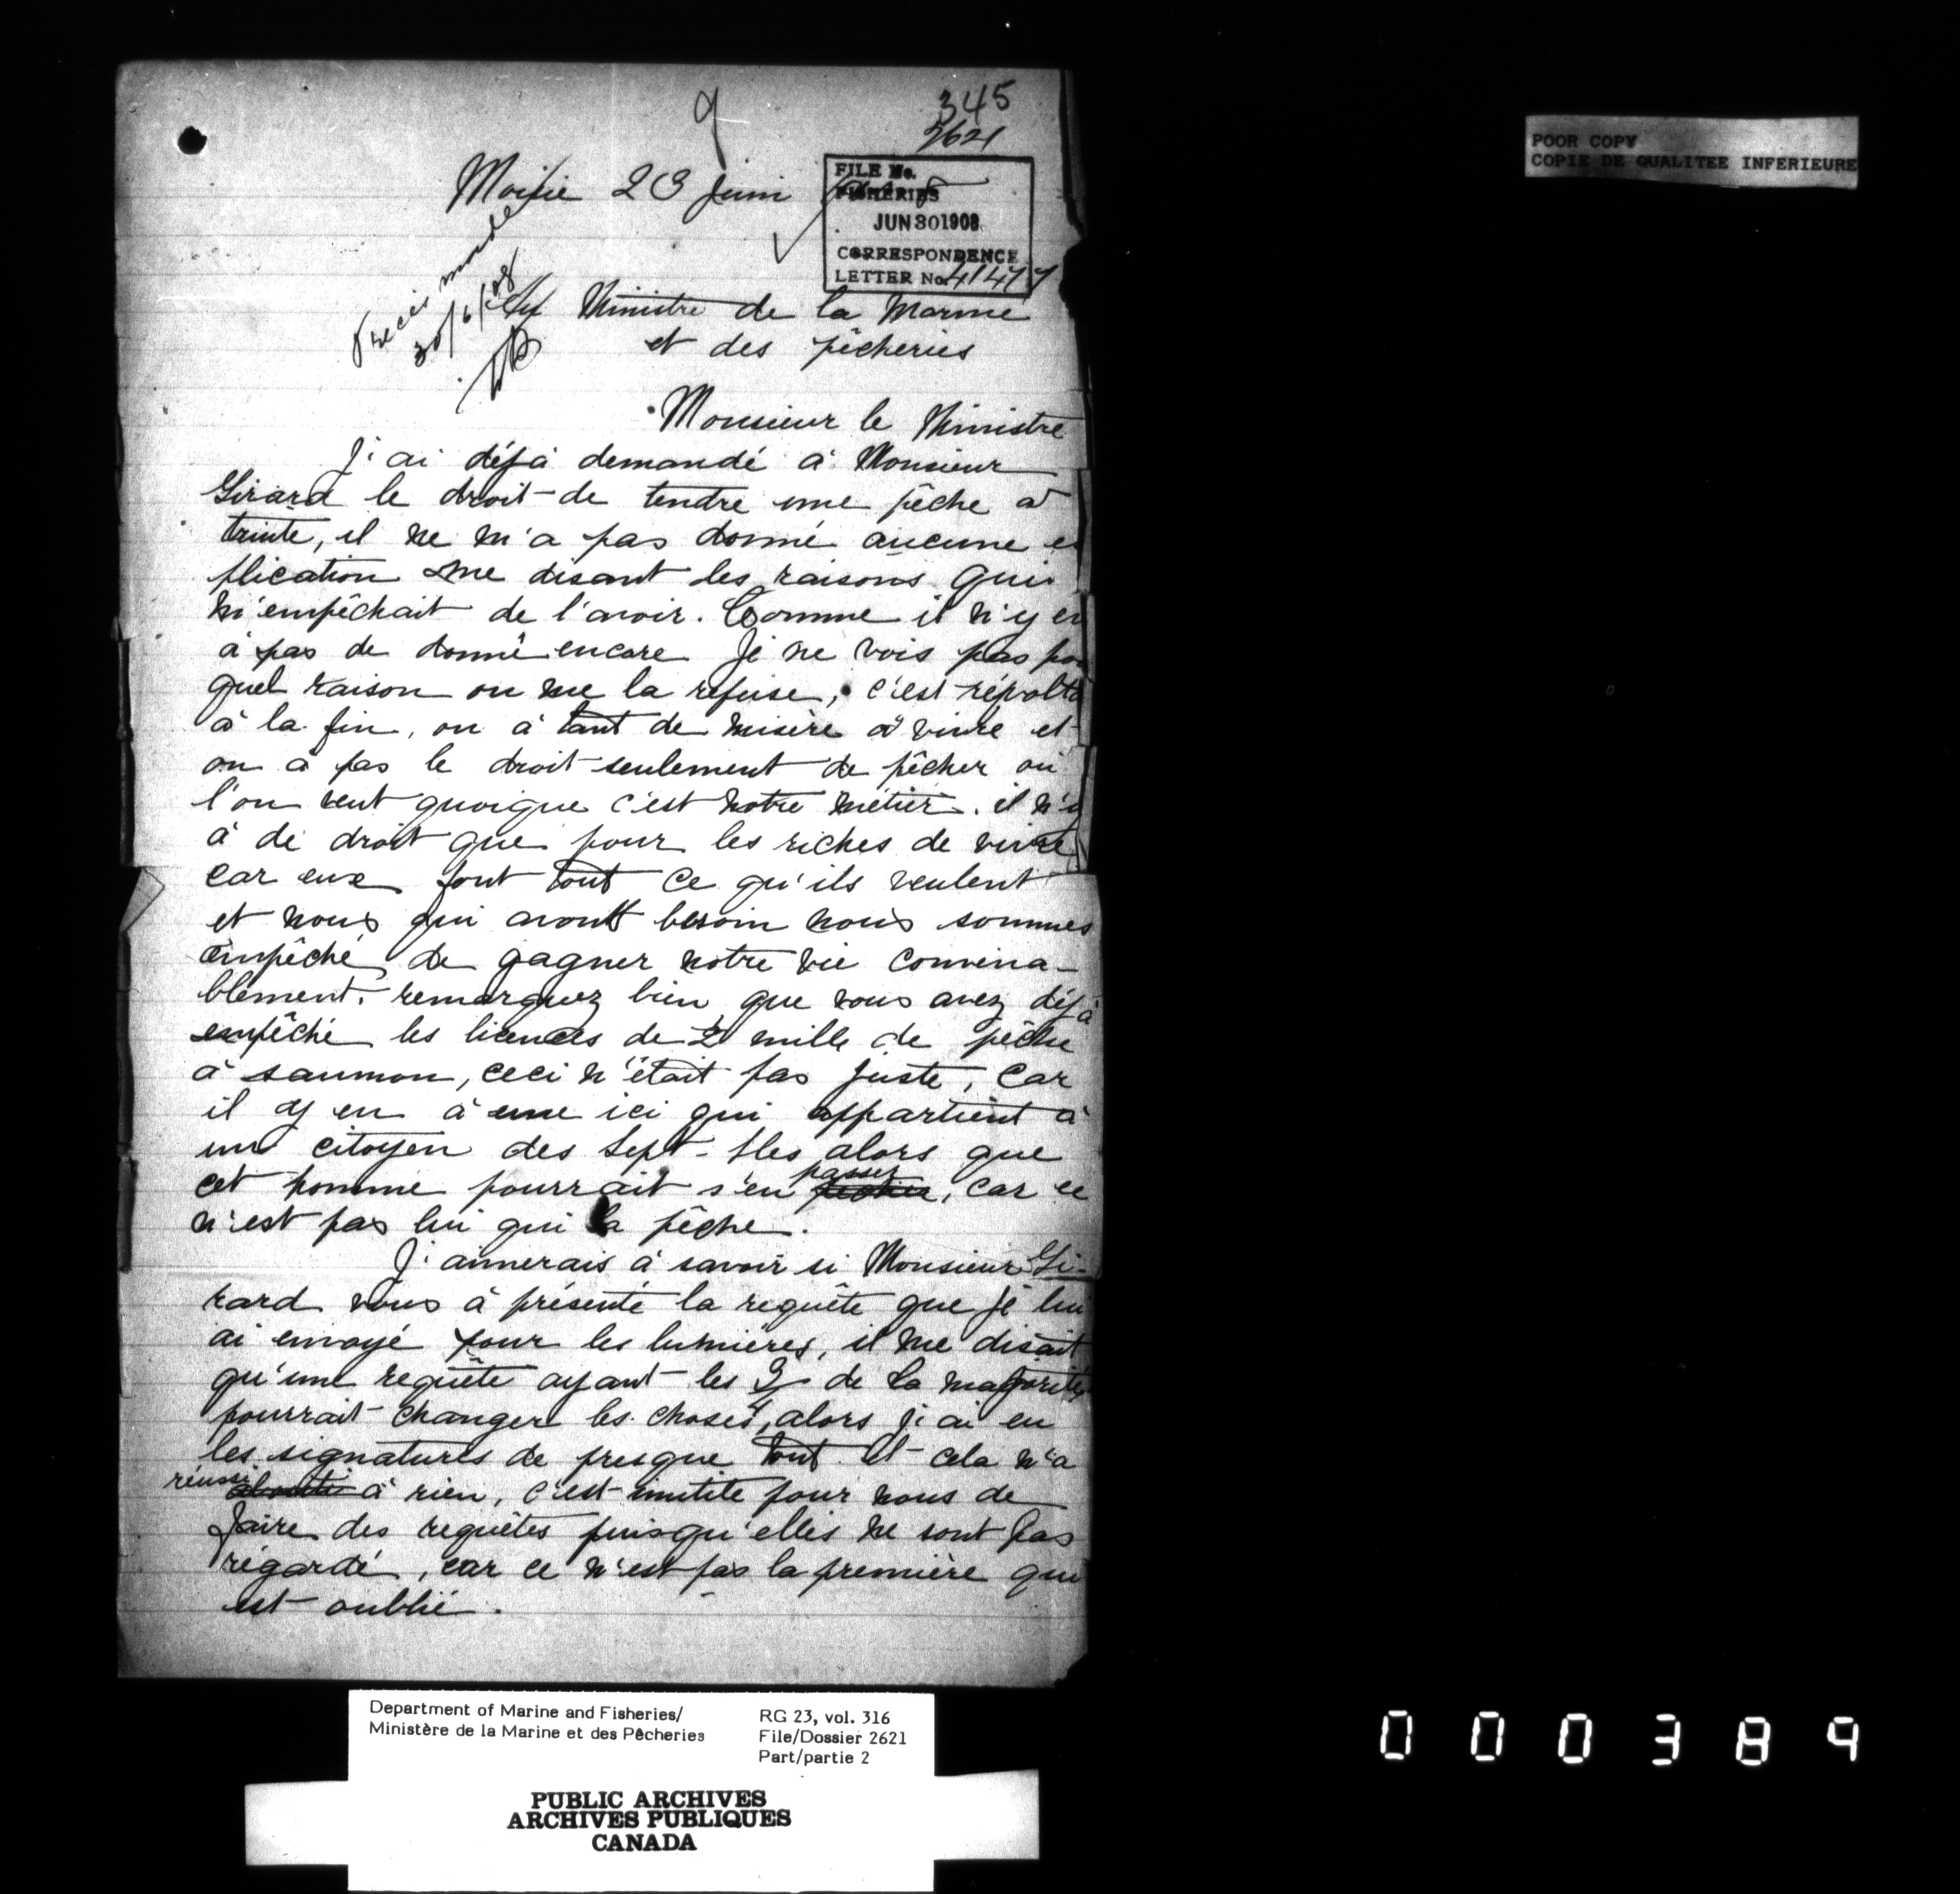 9
345
2621
POOR COPY
COPIE DE QUALITEE INFERIEURE
Moisie 23 Juin
FILE No.
FISHERIES
JUN 30 1908
CORRESPONDENCE
LETTER No. 41477
Precis made
30/6/08
Ministre de la Marine
et des pêcheries
Monsieur le Ministre
J'ai déjà demandé à Monsieur
Girard le droit de tendre une pêche à
truite, il ne m'a pas donné aucune ex
plication me disant les raisons qui
m'empêchait de l'avoir. Comme il n'y en
à pas de donné encore Je ne vois pas pou
quel raison on me la refuse, c'est révolta
à la fin, on à tant de misère à vivre et
on à pas le droit seulement de pêcher où
l'on veut quoique c'est notre métier. il n'y
à de droit que pour les riches de vivre
car eux font tout ce qu'ils veulent
et nous qui avont besoin nous sommes
empêché de gagner notre vie convena-
blement. remarquez bien que vous avez déjà
empêché les licences de 2 mille de pêche
à saumon, ceci n'était pas juste, car
il y en à une ici qui appartient à
un citoyen des Sept-Iles alors que
cet homme pourrait s'en passer, car ce
n'est pas lui qui la pêche.
J'aimerais à savoir si Monsieur Gi-
rard vous à présenté la requête que je lui
ai envoyé pour les lumières, il me disait
qu'une requête ayant les 3/4 de la majorité
pourrait changer les choses, alors j'ai eu
les signatures de presque tout et cela n'a
réussi à rien, c'est inutile pour nous de
faire des requêtes puisqu'elles ne sont pas
régardé, car ce n'est pas la première qui
est oublié.
Department of Marine and Fisheries/
Ministère de la Marine et des Pêcheries
RG 23, vol. 316
File/Dossier 2621
Part/partie 2
PUBLIC ARCHIVES
ARCHIVES PUBLIQUES
CANADA
000389